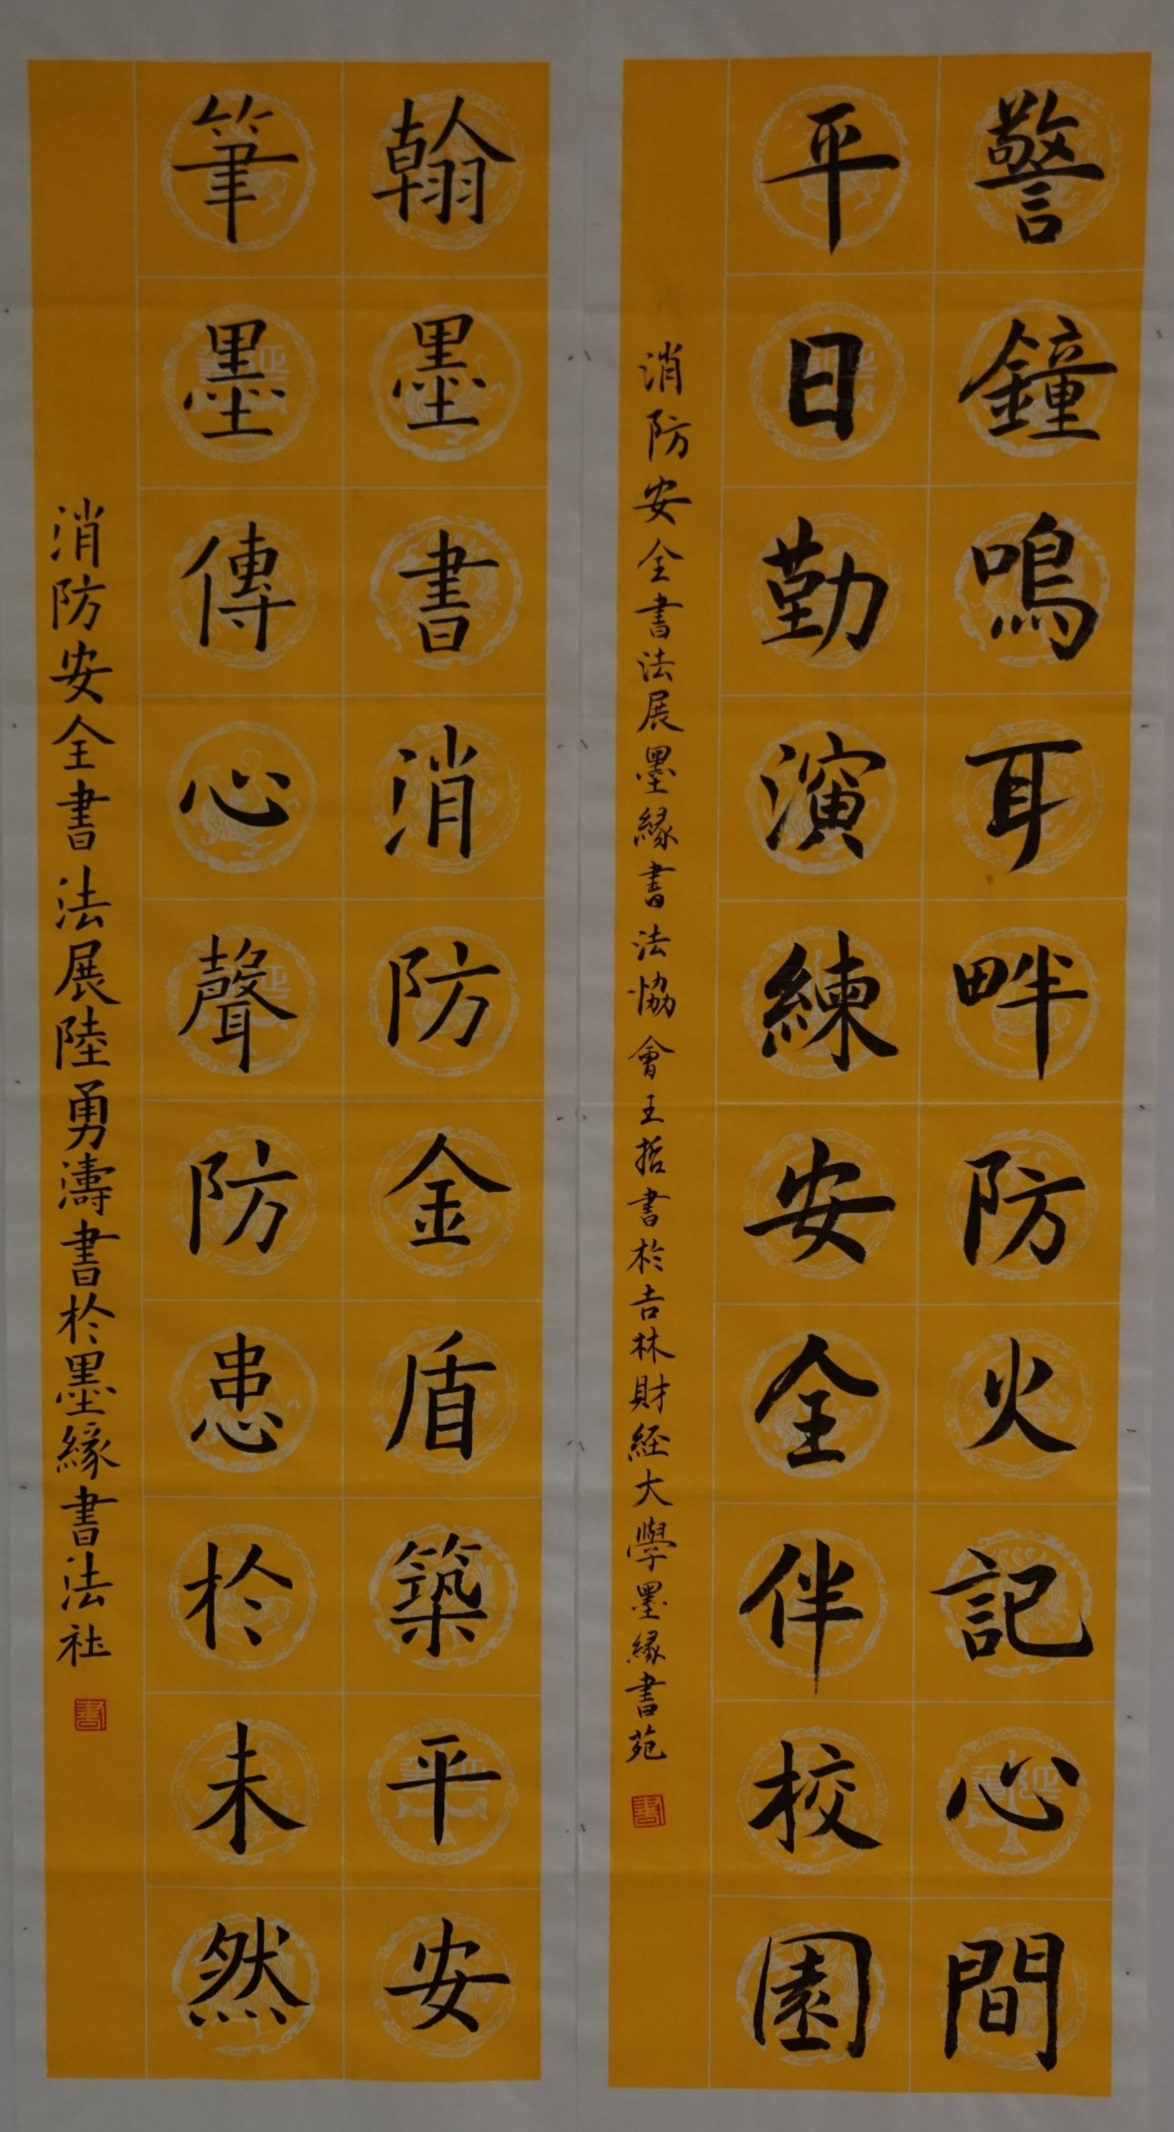 警鐘鳴耳畔防火記心間
平日勤演練安全伴校園
消防安全書法展墨緣書法協會王哲書於吉林財經大學墨緣書苑
書
翰墨書消防金盾築平安
筆墨傳心聲防患於未然
消防安全書法展陸勇濤書於墨緣書法社
書